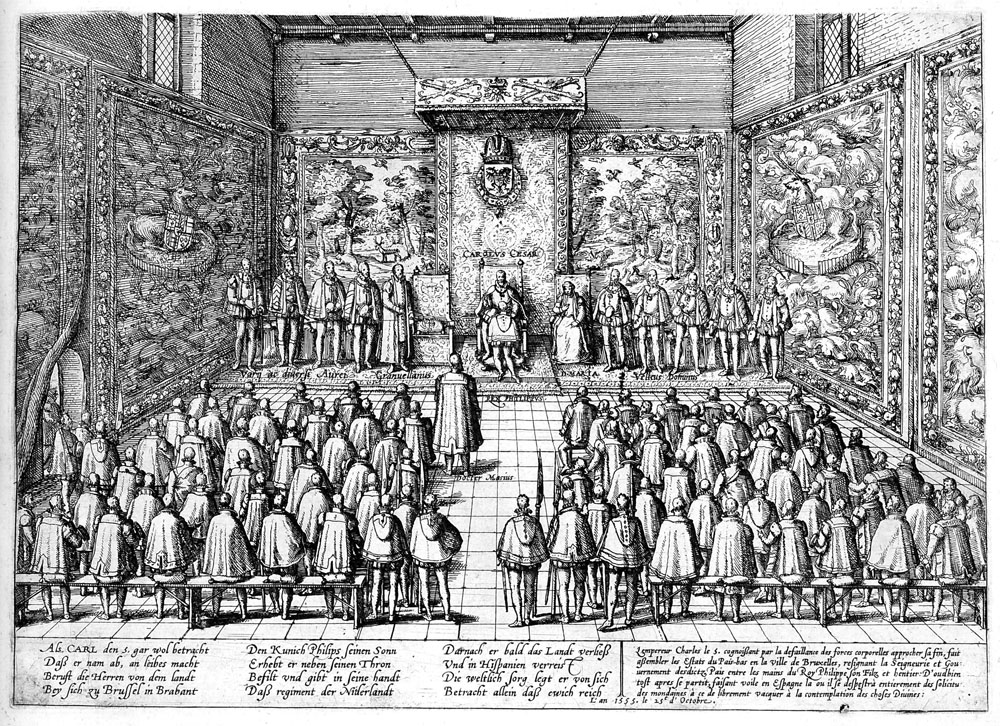 CAROLVS CESAR
Varij ac diversi Aurei
Granvellanus
D. MARIA
Velleris Domini
REX PHILIPPVS
Docter Masius
Als CARL den 5. gar wol betracht
Daß er nam ab, an leibes macht
Beruft die Herren von dem landt
Bey sich zu Brussel in Brabant
Den Kunich Philips seinen Sonn
Erhebt er neben seinen Thron
Befilt und gibt in seine handt
Daß regiment der Niderlandt
Darnach er bald das Landt verließ
Und in Hispanien verreist
Die weltlich sorg legt er von sich
Betracht allein daß ewich reich
L'empereur Charles le 5. cognoissant par la defaillance des forces corporelles approcher sa fin, fait
assembler les Estats du Pais-bas en la ville de Bruxelles, resignant la Seigneurie et Gou-
vernement desdictz Pais entre les mains du Roy Philippe, son Filz et heritier: D'ou bien
tost apres se partit, faisant voile en Espagne la ou il se despestra entierement des solicitu
des mondaines a ce de librement vacquer a la contemplation des choses Divines:
L'an 1555. le 25e d'Octobre.